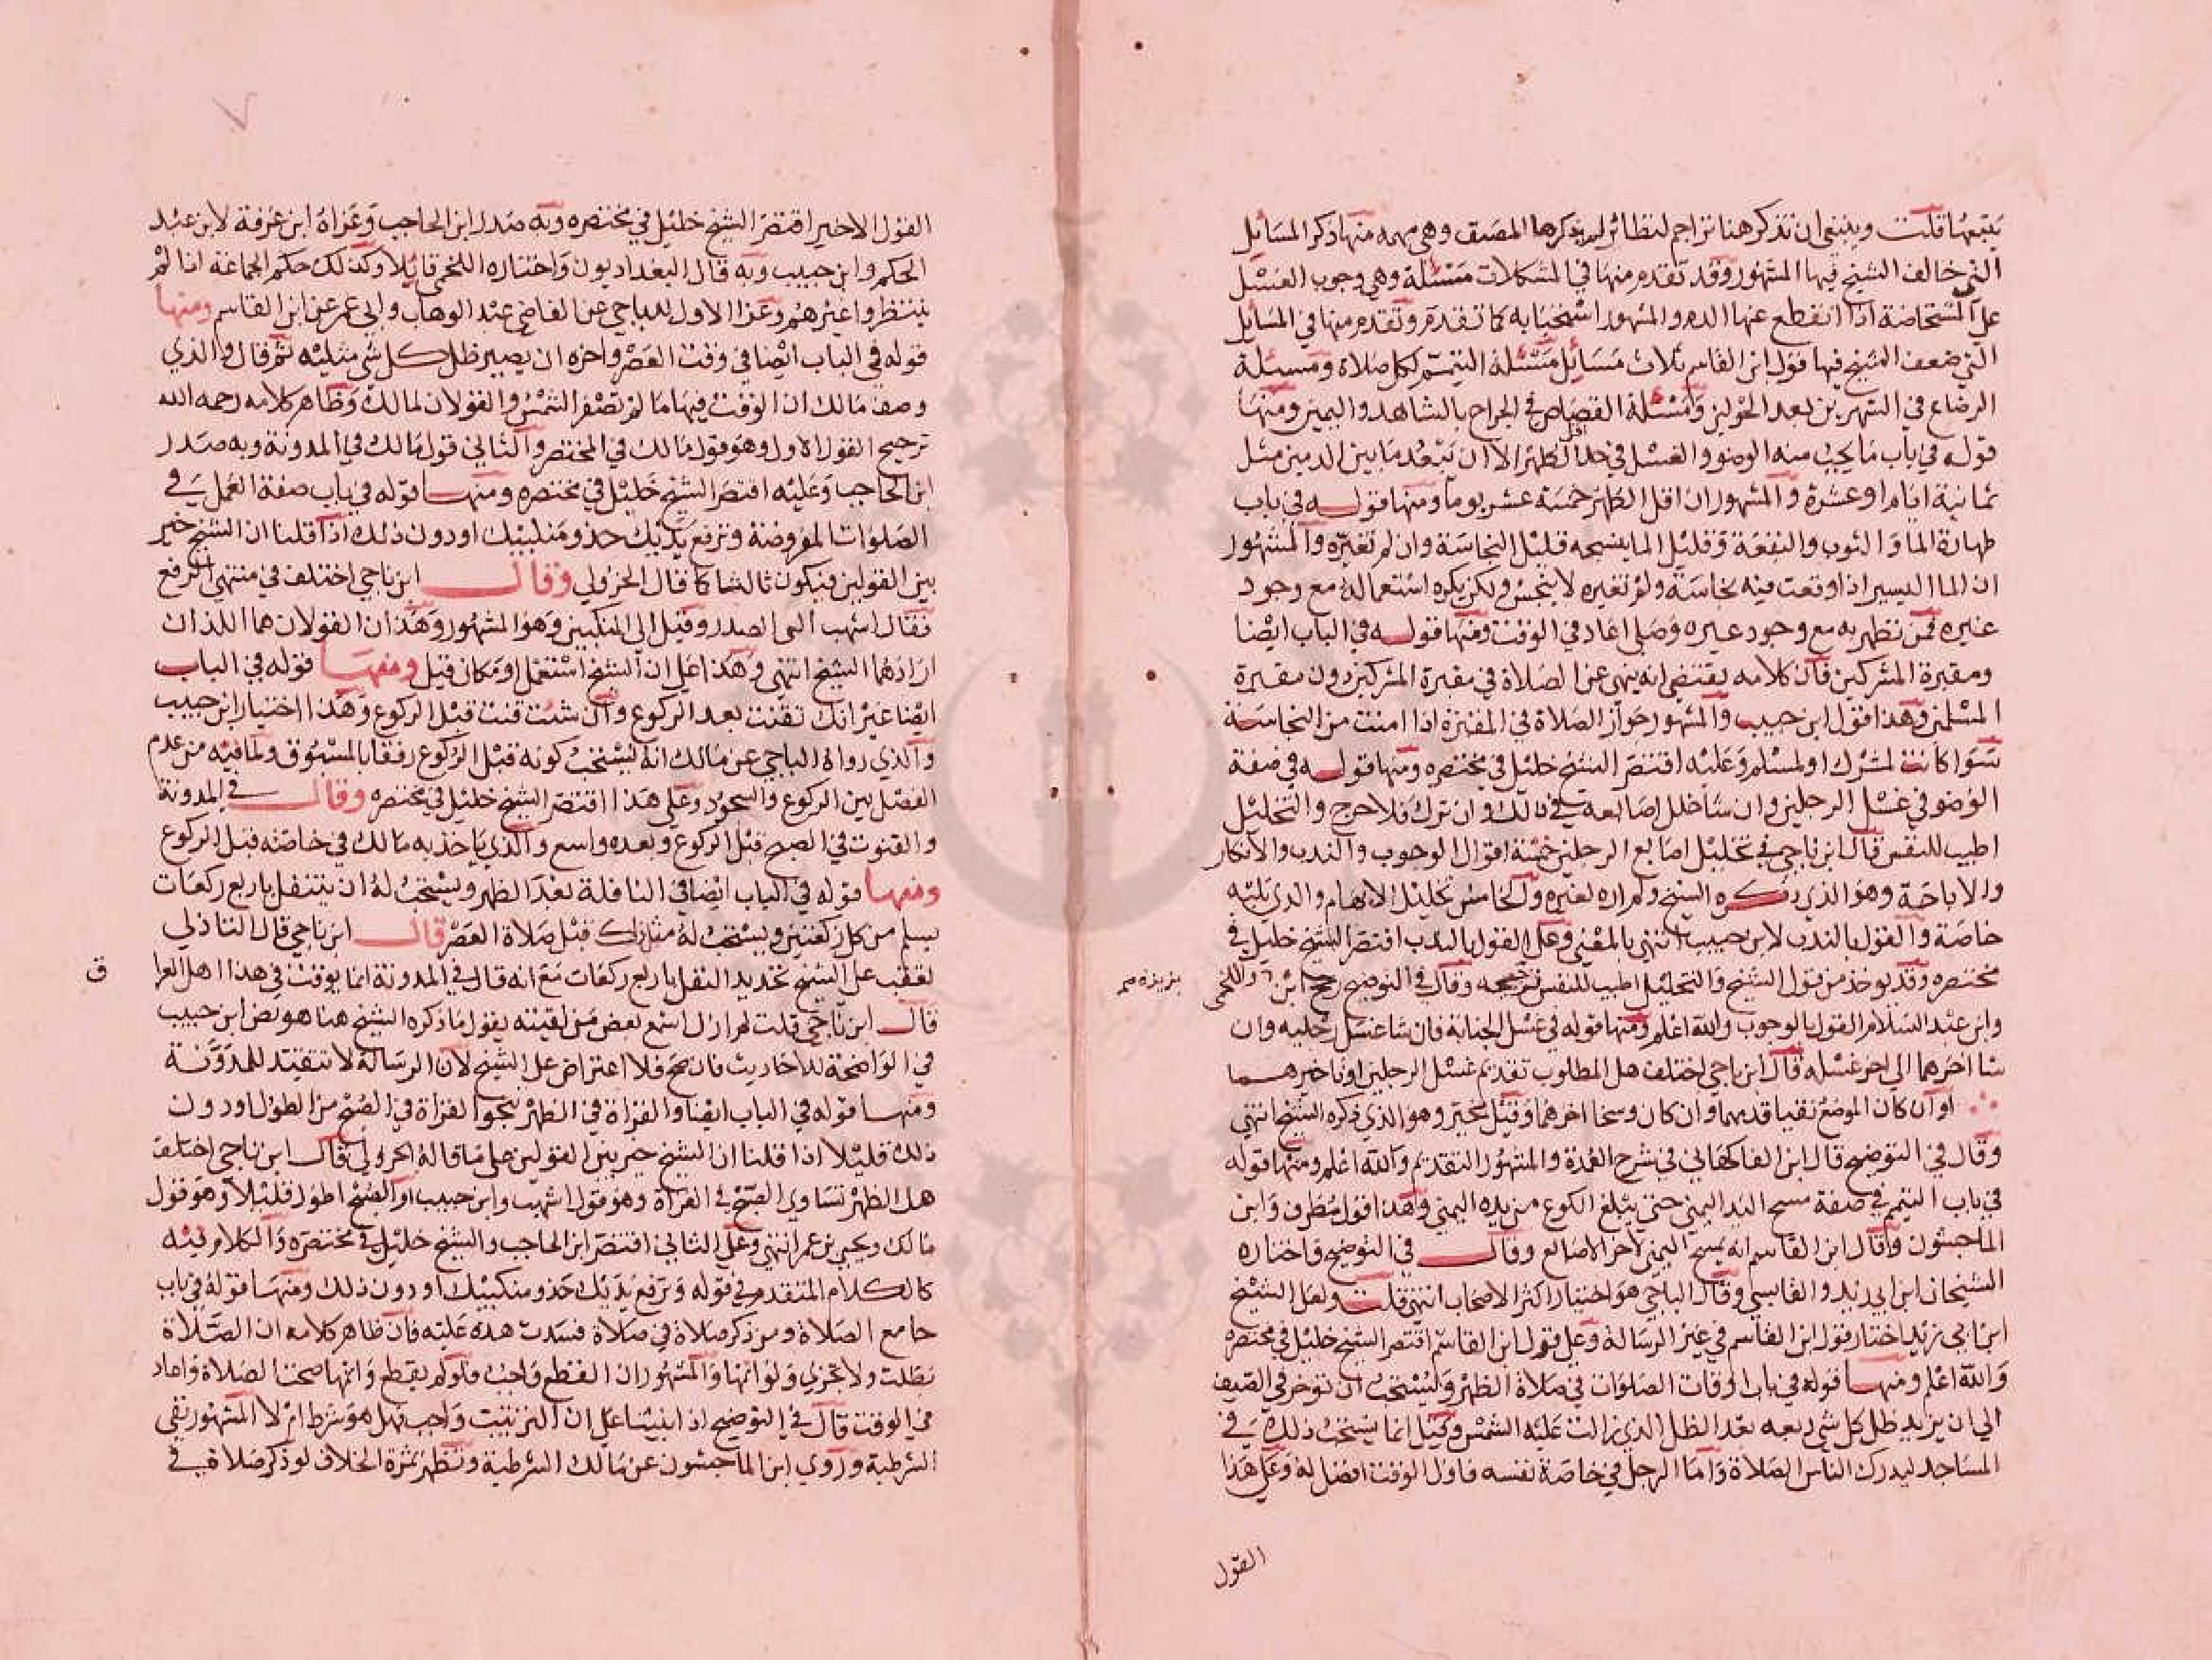 يتبعها قلت وينبغي ان نذكر هنا تراجم لنظائر لم يذكرها المصنف وهي مهمه منها ذكر المسائل
التي خالف الشيخ فيها المشهور وقد تقدم منها في المشكلات مسئلة وهي وجوب الغسل
على المستحاضة اذا انقطع عنها الدم والمشهور استحبابه كما تقدم وتقدم منها في المسائل
التي ضعف الشيخ فيها قول ابن القاسم ثلاث مسائل مسئلة التيمم لكل صلاة ومسئلة
الرضاع في الشهرين بعد الحولين ومسئلة القصاص في الجراح بالشاهد واليمين ومنها
قوله في باب ما يجب منه الوضو والغسل في حد اقل الطهر الا ان يبعد ما بين الدمين مثل
ثمانية ايام او عشرة والمشهور ان اقل الطهر خمسة عشر يوما ومنها قوله في باب
طهارة الما والثوب والبقعة وقليل الما ينجسه قليل النجاسة وان لم تغيره والمشهور
ان الما اليسير اذا وقعت فيه نجاسة ولم تغيره لا ينجس ولكن يكره استعماله مع وجود
غيره فمن تطهر به مع وجود غيره وصلى اعاد في الوقت ومنها قوله في الباب ايضا
ومقبرة المشركين فان كلامه يقتضي انه ينهى عن الصلاة في مقبرة المشركين دون مقبرة
المسلمين وهذا قول ابن حبيب والمشهور جواز الصلاة في المقبرة اذا امنت من النجاسة
سوا كانت لمشرك او لمسلم وعليه اقتصر الشيخ خليل في مختصره ومنها قوله في صفة
الوضو في غسل الرجلين وان شا خلل اصابعه في ذلك وان ترك فلا حرج والتخليل
اطيب للنفس قال ابن ناجي في تخليل اصابع الرجلين خمسة اقوال الوجوب والندب والانكار
والاباحة وهو الذي ذكره الشيخ ولم اره لغيره والخامس تخليل الابهام والذي تليه
خاصة والقول بالندب لابن حبيب انتهى بالمعنى وعلى القول بالندب اقتصر الشيخ خليل في
مختصره وقد يوخذ من قول الشيخ والتخليل اطيب للنفس ترجيحه وقال في التوضيح رجح اللخمي وابن
بزيزة صح
وابن عبد السلام القول بالوجوب والله اعلم ومنها قوله في غسل الجنابة فان شا غسل رجليه وان
شا اخرهما الى اخر غسله قال ابن ناجي اختلف هل المطلوب تقديم غسل الرجلين او تاخيرهما
او ان كان الموضع نقيا قدمهما وان كان وسخا اخرهما وقيل مخير وهو الذي ذكره الشيخ انتهى
وقال في التوضيح قال ابن الفاكهاني في شرح العمدة والمشهور التقديم والله اعلم ومنها قوله
في باب التيمم في صفة مسح اليد اليمنى حتى يبلغ الكوع من يده اليمنى وهذا قول مطرف وابن
الماجشون وقال ابن القاسم انه يمسح اليمنى لاخر الاصابع وقال في التوضيح واختاره
الشيخان ابن ابي زيد والقابسي وقال الباجي هو اختيار اكثر الاصحاب انتهى قلت ولعل الشيخ
ابن ابي زيد اختار قول ابن القاسم في غير الرسالة وعلى قول ابن القاسم اقتصر الشيخ خليل في مختصره
والله اعلم ومنها قوله في باب اوقات الصلوات في صلاة الظهر ويستحب ان توخر في الصيف
الى ان يزيد ظل كل شي ربعه بعد الظل الذي زالت عليه الشمس وقيل انما يستحب ذلك في
المساجد ليدرك الناس الصلاة واما الرجل في خاصة نفسه فاول الوقت افضل له وعلى هذا
القول
القول الاخير اقتصر الشيخ خليل في مختصره وبه صدر ابن الحاجب وعزاه ابن عرفة لابن عبد
الحكم وابن حبيب وبه قال البغداديون واختاره اللخمي قايلا وكذلك حكم الجماعة اذا لم
ينتظروا غيرهم وعزا الاول للباجي عن القاضي عبد الوهاب وابي عمر عن ابن القاسم ومنها
قوله في الباب ايضا في وقت العصر واخره ان يصير ظل كل شي مثليه ثم قال والذي
وصف مالك ان الوقت فيها ما لم تصفر الشمس والقولان لمالك وظاهر كلامه رحمه الله
ترجيح القول الاول وهو قول مالك في المختصر والثاني قول مالك في المدونة وبه صدر
ابن الحاجب وعليه اقتصر الشيخ خليل في مختصره ومنها قوله في باب صفة العمل في
الصلوات المفروضة وترفع يديك حذو منكبيك او دون ذلك اذا قلنا ان الشيخ خير
بين القولين فيكون ثالثا كما قال الجزولي وقال ابن ناجي اختلف في منتهى الرفع
فقال اشهب الى الصدر وقيل الى المنكبين وهو المشهور وهذان القولان هما اللذان
ارادهما الشيخ انتهى وهكذا على ان الشيخ استعمل او مكان قيل ومنها قوله في الباب
ايضا غير انك تقنت بعد الركوع وان شئت قنت قبل الركوع وهذا اختيار ابن حبيب
والذي رواه الباجي عن مالك انه يستحب كونه قبل الركوع رفقا بالمسبوق ولما فيه من عدم
الفصل بين الركوع والسجود وعلى هذا اقتصر الشيخ خليل في مختصره وقال في المدونة
والقنوت في الصبح قبل الركوع وبعده واسع والذي ياخذ به مالك في خاصته قبل الركوع
ومنها قوله في الباب ايضا في النافلة بعد الظهر ويستحب له ان يتنفل باربع ركعات
يسلم من كل ركعتين ويستحب له مثل ذلك قبل صلاة العصر قال ابن ناجي قال التادلي
تعقب على الشيخ تحديد النفل باربع ركعات مع انه قال في المدونة انما يوقت في هذا اهل العرا
ق
قال ابن ناجي قلت لم ازل اسمع بعض من لقيته يقول ما ذكره الشيخ هنا هو نص ابن حبيب
في الواضحة للاحاديث فان صح فلا اعتراض على الشيخ لان الرسالة لا تتقيد للمدونة
ومنها قوله في الباب ايضا والقراة في الظهر بنحو القراة في الصبح من الطول او دون
ذلك قليلا اذا قلنا ان الشيخ خير بين القولين على ما قاله الجزولي قال ابن ناجي اختلف
هل الظهر تساوي الصبح في القراة وهو قول اشهب وابن حبيب او الصبح اطول قليلا وهو قول
مالك ويحيى بن عمر انتهى وعلى الثاني اقتصر ابن الحاجب والشيخ خليل في مختصره والكلام فيه
كالكلام المتقدم في قوله وترفع يديك حذو منكبيك او دون ذلك ومنها قوله في باب
جامع الصلاة ومن ذكر صلاة في صلاة فسدت هذه عليه فان ظاهر كلامه ان الصلاة
بطلت ولا تجزي ولو اتمها والمشهور ان القطع واجب فلو لم يقطع واتمها صحت الصلاة واعاد
في الوقت قال في التوضيح اذا بنينا على ان الترتيب واجب فهل هو شرط ام لا المشهور نفي
الشرطية وروى ابن الماجشون عن مالك الشرطية وتظهر ثمرة الخلاف لو ذكر صلاة في